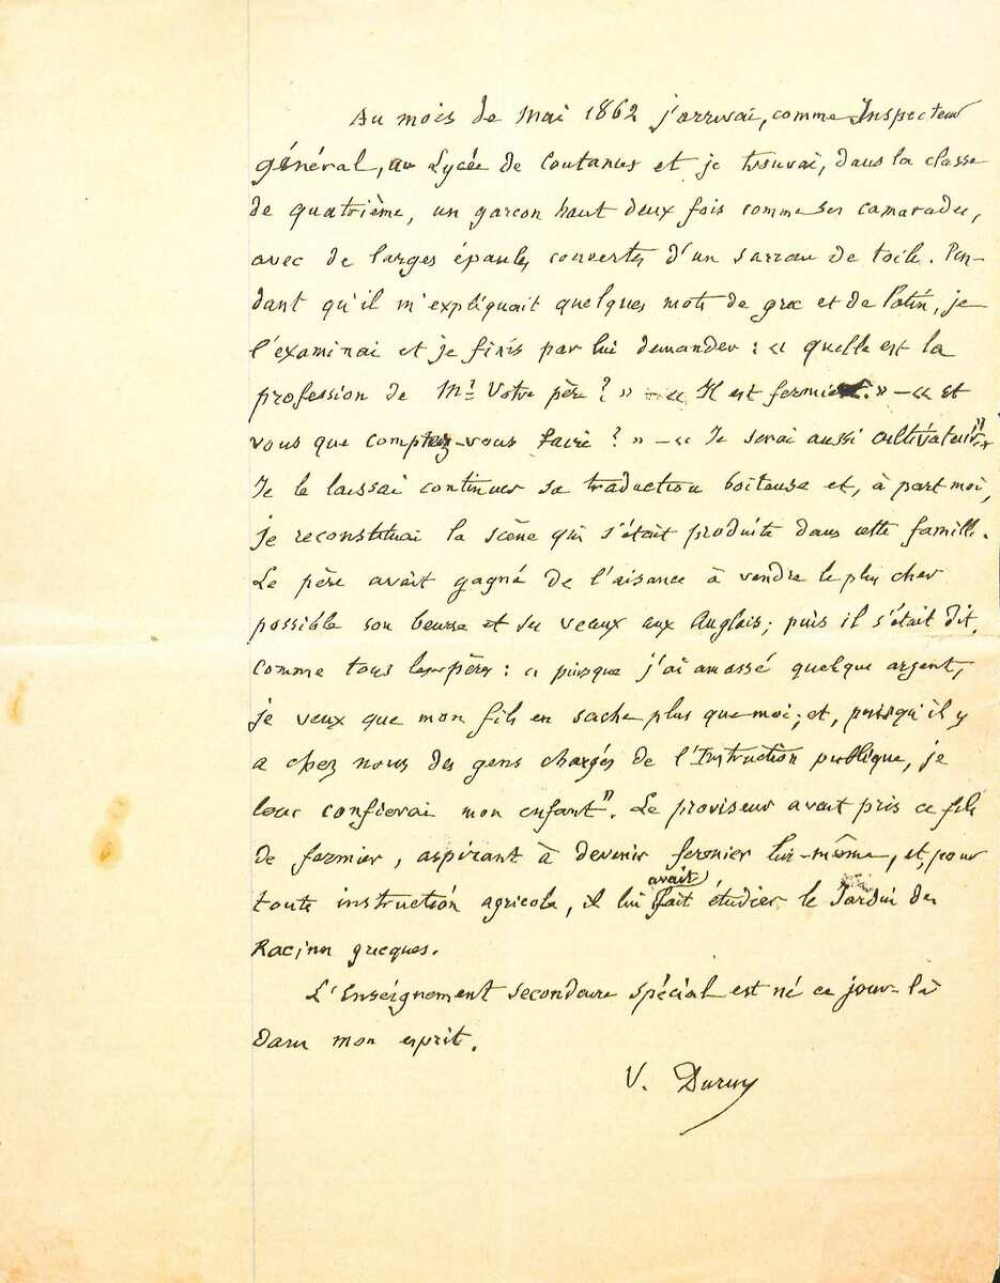 Au mois de Mai 1862 j'arrivai, comme Inspecteur
général, au Lycée de Coutances et je trouvai, dans la classe
de quatrième, un garçon haut deux fois comme ses camarades,
avec de larges épaules couvertes d'un sarrau de toile. Pen-
dant qu'il m'expliquait quelques mots de grec et de latin, je
l'examinai et je finis par lui demander : « quelle est la
profession de Mr Votre père ? » — « Il est fermier. » — « et
vous que comptez-vous faire ? » — « Je serai aussi cultivateur".
Je le laissai continuer sa traduction boiteuse et, à part moi,
je reconstituai la scène qui s'était produite dans cette famille.
Le père avait gagné de l'aisance à vendre le plus cher
possible son beurre et ses veaux aux Anglais; puis il s'était dit,
comme tous les pères : « puisque j'ai amassé quelque argent,
je veux que mon fils en sache plus que moi; et, puisqu'il y
a chez nous des gens chargés de l'Instruction publique, je
leur confierai mon enfant". Le proviseur avait pris ce fils
de fermier, aspirant à devenir fermier lui-même, et, pour
toute instruction agricole, il lui avait fait étudier le Jardin des
Racines grecques.
L'Enseignement secondaire spécial est né ce jour-là
dans mon esprit.
V. Duruy